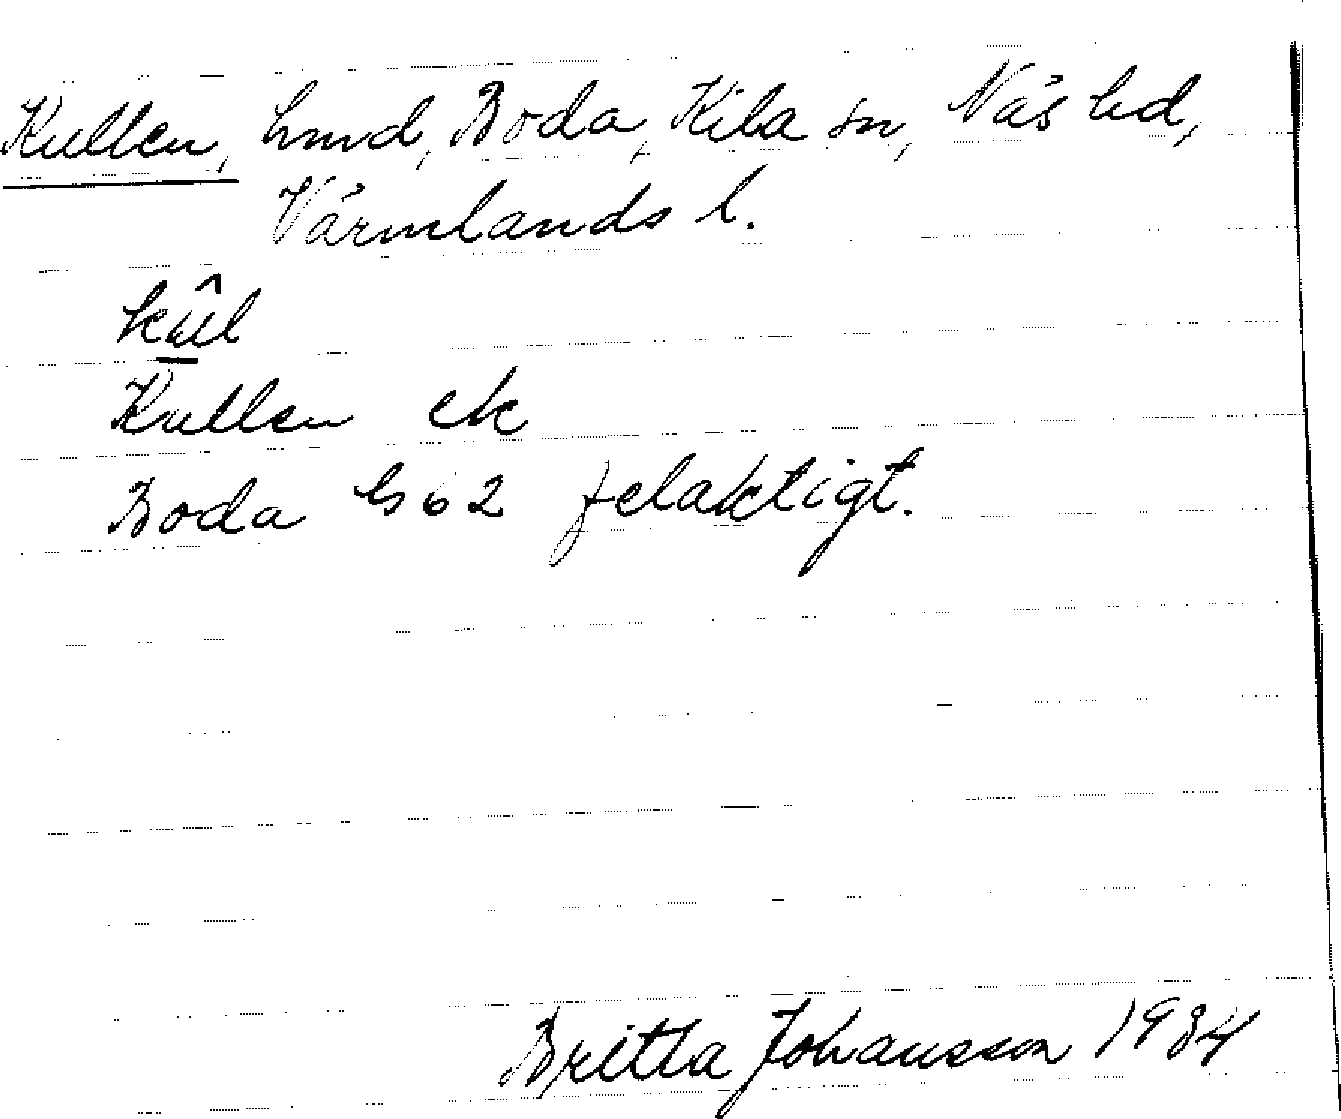 Kullen, hmd, Boda, Kila sn, Näs hd,
Värmlands l.
kûl
Kullen ek
Boda G62 felaktigt.
Britta Johansson 1984